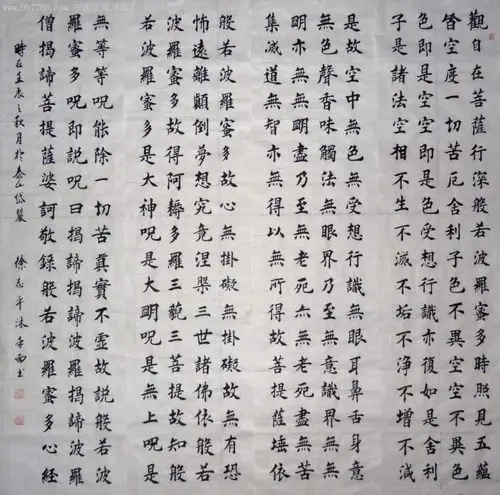 觀自在菩薩行深般若波羅蜜多時照見五蘊
皆空度一切苦厄舍利子色不異空空不異色
色即是空空即是色受想行識亦復如是舍利
子是諸法空相不生不滅不垢不淨不增不減
是故空中無色無受想行識無眼耳鼻舌身意
無色聲香味觸法無眼界乃至無意識界無無
明亦無無明盡乃至無老死亦無老死盡無苦
集滅道無智亦無得以無所得故菩提薩埵依
般若波羅蜜多故心無掛礙無掛礙故無有恐
怖遠離顛倒夢想究竟涅槃三世諸佛依般若
波羅蜜多故得阿耨多羅三藐三菩提故知般
若波羅蜜多是大神呪是大明呪是無上呪是
無等等呪能除一切苦真實不虛故説般若波
羅蜜多呪即説呪曰揭諦揭諦波羅揭諦波羅
僧揭諦菩提薩婆訶敬錄般若波羅蜜多心經
時在壬辰之秋月於泰山岱麓 徐志平沐手而书